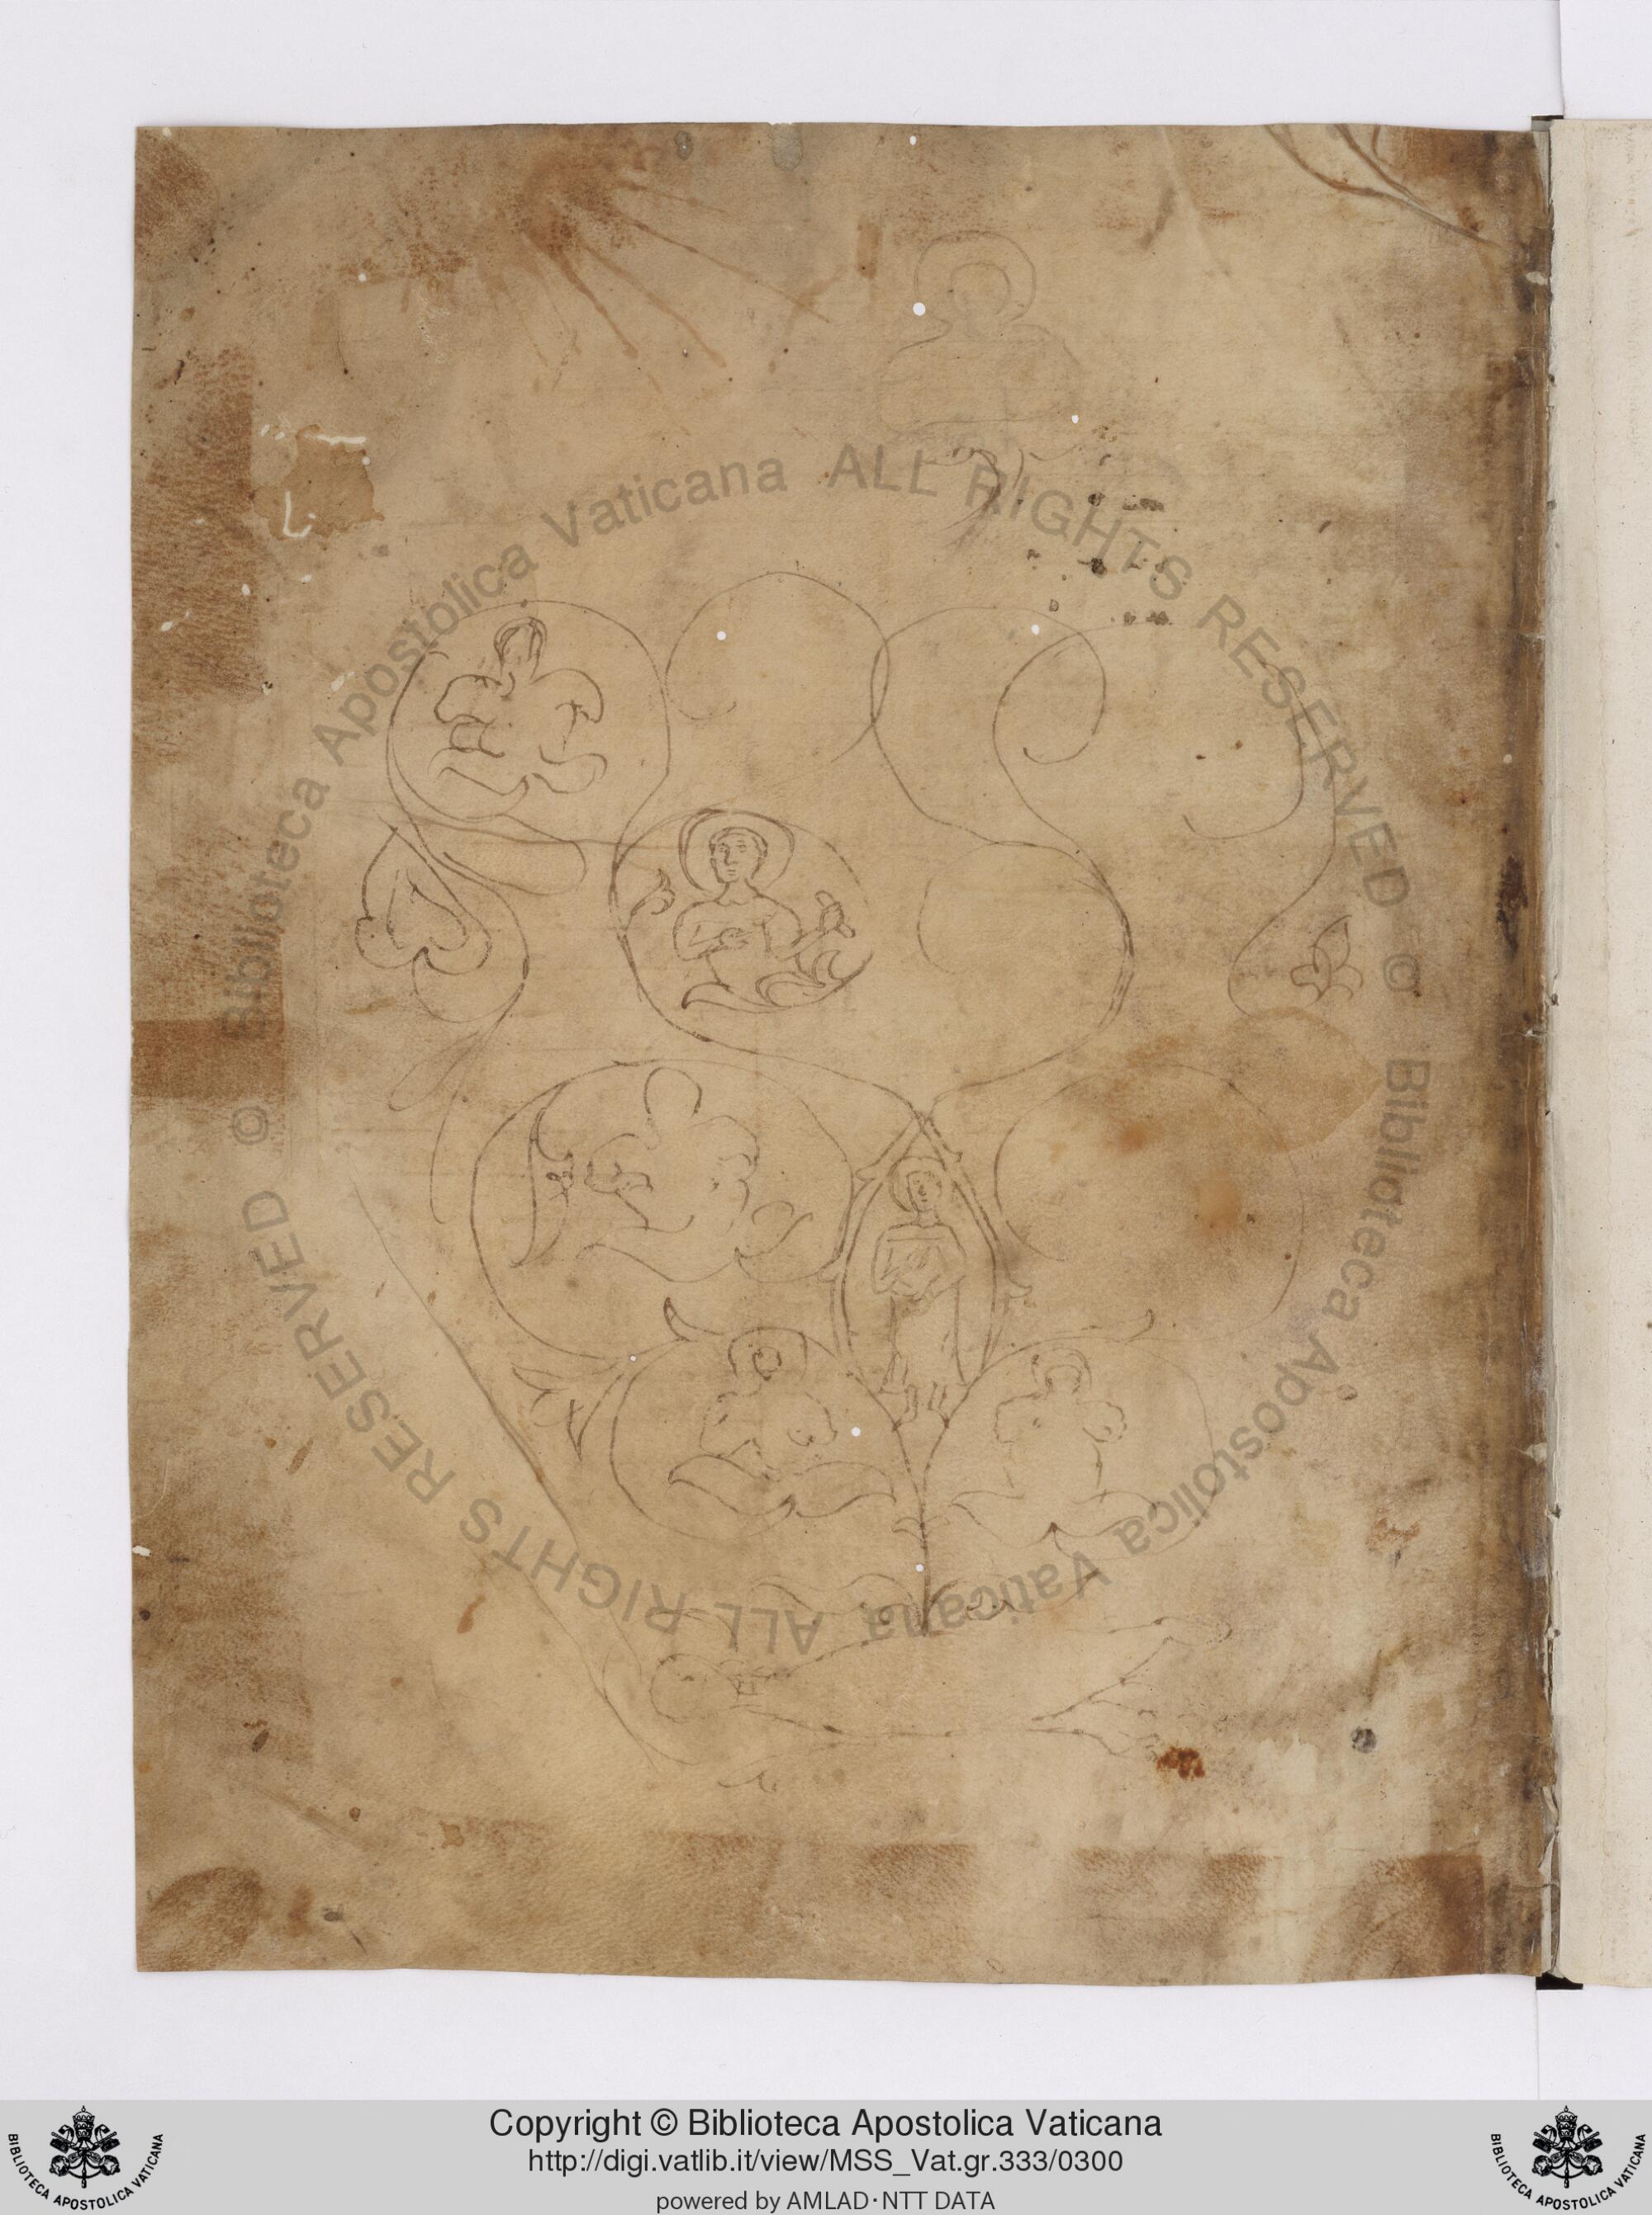 Biblioteca Apostolica Vaticana ALL RIGHTS RESERVED ©
Biblioteca Apostolica Vaticana ALL RIGHTS RESERVED ©
Copyright © Biblioteca Apostolica Vaticana
http://digi.vatlib.it/view/MSS_Vat.gr.333/0300
powered by AMLAD·NTT DATA
BIBLIOTECA APOSTOLICA VATICANA
BIBLIOTECA APOSTOLICA VATICANA